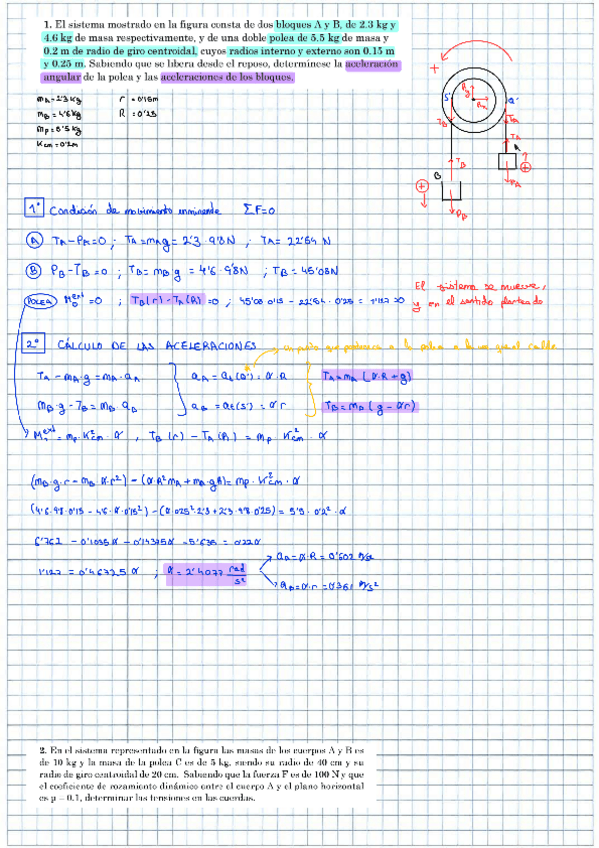 1. El sistema mostrado en la figura consta de dos bloques A y B, de 2.3 kg y
4.6 kg de masa respectivamente, y de una doble polea de 5.5 kg de masa y
0.2 m de radio de giro centroidal, cuyos radios interno y externo son 0.15 m
y 0.25 m. Sabiendo que se libera desde el reposo, determínese la aceleración
angular de la polea y las aceleraciones de los bloques.
mA = 2'3 Kg r = 0'15m
mB = 4'6 Kg R = 0'25
mp = 5'5 Kg
Kcm = 0'2m
1º Condición de movimiento inminente ΣF=0
A TA - PA = 0 ; TA = mA g = 2'3 · 9'8 N ; TA = 22'54 N
B PB - TB = 0 ; TB = mB g = 4'6 · 9'8 N ; TB = 45'08 N
POLEA M ext = 0 ; TB (r) - TA (R) = 0 ; 45'08 · 0'15 - 22'54 · 0'25 = 1'127 > 0
El sistema se mueve,
y en el sentido planteado
2º CÁLCULO DE LAS ACELERACIONES
TA - mA · g = mA · aA aA = at (Q') = α · R TA = mA (α · R + g)
mB · g - TB = mB aB aB = at (S') = α r TB = mB (g - α r)
M ext = mp · K²cm · α , TB (r) - TA (R) = mp · K²cm · α
(mB · g · r - mB · α · r²) - (α · R² mA + mA · g R) = mp · K²cm · α
(4'6 · 9'8 · 0'15 - 4'6 · α · 0'15²) - (α · 0'25² · 2'3 + 2'3 · 9'8 · 0'25) = 5'5 · 0'2² · α
6'762 - 0'1035 α - 0'14375 α - 5'635 = 0'22 α
1'127 = 0'46725 α ; α = 2'4077 rad/s²
aA = α · R = 0'602 m/s²
aB = α · r = 0'361 m/s²
2. En el sistema representado en la figura las masas de los cuerpos A y B es
de 10 kg y la masa de la polea C es de 5 kg, siendo su radio de 40 cm y su
radio de giro centroidal de 20 cm. Sabiendo que la fuerza F es de 100 N y que
el coeficiente de rozamiento dinámico entre el cuerpo A y el plano horizontal
es μ = 0.1, determinar las tensiones en las cuerdas.